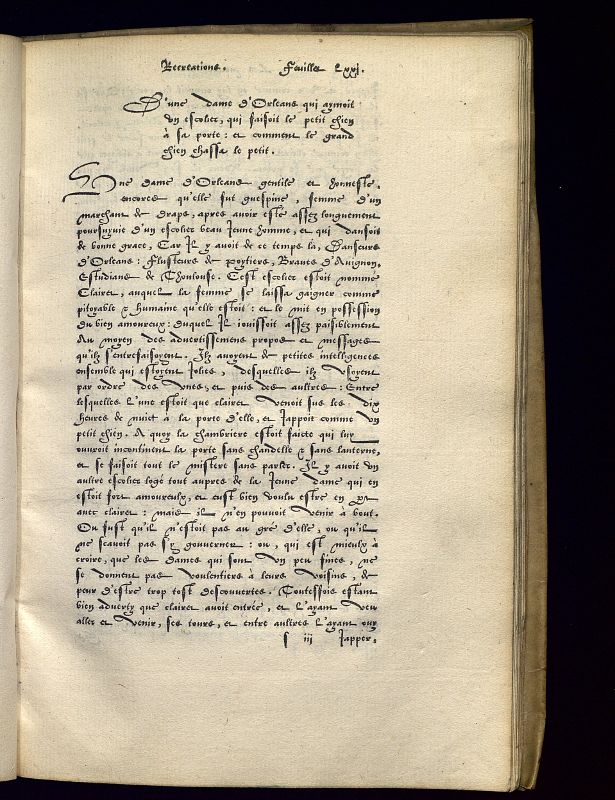 Recreations. Feuillet Lxxj.
D'une dame d'Orleans qui aymoit
vn escolier, qui faisoit le petit chien
à sa porte : et comment le grand
chien chassa le petit.
Vne dame d'Orleans gentile et honneste,
encores qu'elle fut guespine, femme d'un
marchant de draps, apres avoir esté assez longuement
poursuyvie d'un escolier beau jeune homme, et qui dansoit
de bonne grace, Car Il y avoit de ce temps la, Danseurs
d'Orleans : Flusteurs de poytiers, Braves d'Avignon,
Estudians de Thoulouse. Cest escolier estoit nommé
Clairet, auquel la femme se laissa gaigner comme
pitoyable & humaine qu'elle estoit : et le mit en possession
du bien amoureux : duquel Il jouissoit assez paisiblement
Au moyen des advertissemens propos et messages
qu'ilz s'entrefaisoyent. Ilz avoyent de petites intelligences
ensemble qui estoyent jolies, desquelles ilz vsoyent
par ordre des vnes, et puis des aultres : Entre
lesquelles l'une estoit que clairet venoit sus les dix
heures de nuict à la porte d'elle, et jappoit comme vn
petit chien. A quoy la chambriere estoit faicte qui luy
ouvroit incontinent la porte sans chandelle & sans lanterne,
et se faisoit tout le mistere sans parler. Il y avoit vn
aultre escolier logé tout aupres de la jeune dame qui en
estoit fort amoureulx, et eust bien voulu estre en part
avec clairet : mais il n'en pouvoit venir à bout.
Ou fust qu'il n'estoit pas au gré d'elle, ou qu'il
ne scavoit pas s'y gouverner : ou, qui est mieulx à
croire, que les dames qui sont vn peu fines, ne
se donnent pas voulentiers à leurs voisins, de
peur d'estre trop tost descouvertes. Toutesfois estant
bien adverty que clairet avoit entrée, et l'ayant veu
aller et venir, ses tours, et entre aultres l'ayant ouy
f iii Japper,